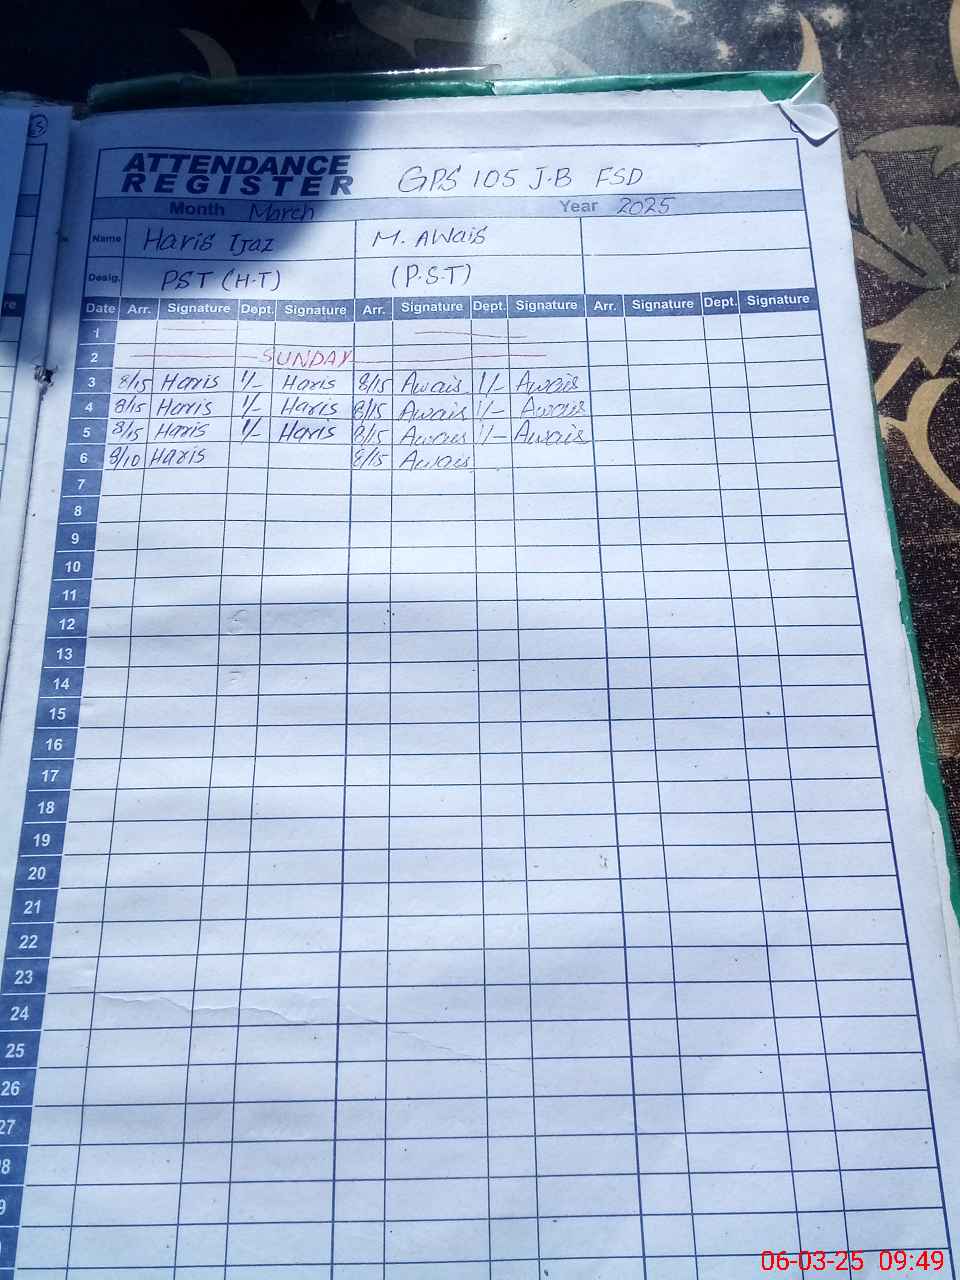 ATTENDANCE
REGISTER
GPS 105 J.B FSD
Month March Year 2025
Name Haris Ijaz M. Awais
Desig. PST (H.T) (P.S.T)
Date Arr. Signature Dept. Signature Arr. Signature Dept. Signature Arr. Signature Dept. Signature
1
2 SUNDAY
3 8/15 Haris 1/- Haris 8/15 Awais 1/- Awais
4 8/15 Haris 1/- Haris 8/15 Awais 1/- Awais
5 8/15 Haris 1/- Haris 8/15 Awais 1/- Awais
6 8/10 Haris 8/15 Awais
7
8
9
10
11
12
13
14
15
16
17
18
19
20
21
22
23
24
25
26
27
8
9
06-03-25 09:49